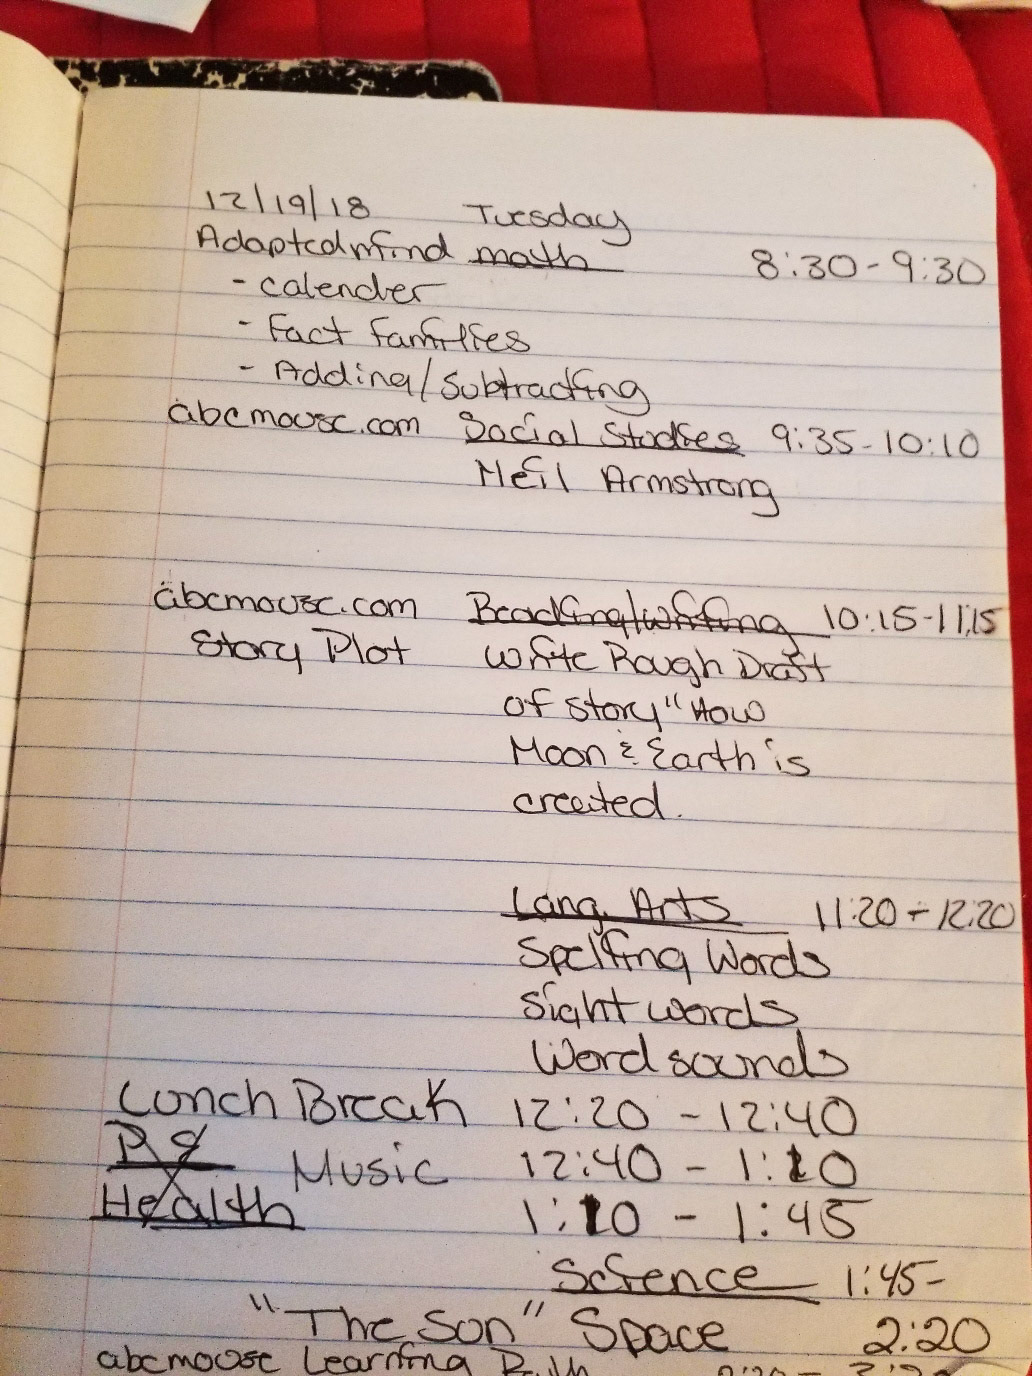 12/19/18 Tuesday
Adaptedmind math 8:30-9:30
- calender
- Fact families
- Adding/Subtracting
abcmouse.com Social Studies 9:35-10:10
Neil Armstrong
abcmouse.com Reading/writing 10:15-11:15
Story Plot write Rough Draft
of story "How
Moon & Earth is
created.
Lang. Arts 11:20-12:20
Spelling Words
Sight words
Word sounds
Lunch Break 12:20-12:40
Music 12:40-1:10
Health 1:10-1:45
Science 1:45-
"The Sun" Space 2:20
abcmouse Learning Path